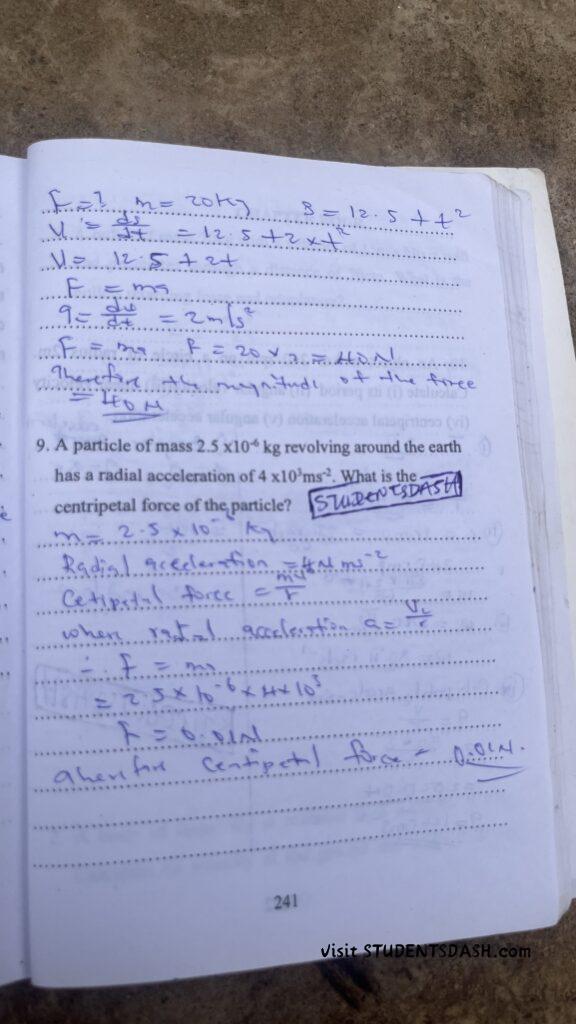 F = ? m = 20 Kg S = 12.5 + t²
V = ds/dt = 12.5 + 2 x t²
V = 12.5 + 2t
F = ma
a = dv/dt = 2m/s²
F = ma F = 20 x 2 = 40N
Therefore the magnitude of the force
= 40 N
9. A particle of mass 2.5 x10⁻⁶ kg revolving around the earth
has a radial acceleration of 4 x10³ms⁻². What is the
centripetal force of the particle? STUDENTSDASH
m = 2.5 x 10⁻⁶ Kg
Radial acceleration = ms⁻²
Cetipetal force =
where radial acceleration a =
∴ F = ma
= 2.5 x 10⁻⁶ x 4 x 10³
F = 0.01N
Therefore Centipetal force = 0.01N.
241
Visit STUDENTSDASH.com